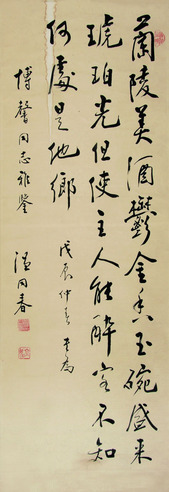 蘭陵美酒鬱金香玉碗盛来
琥珀光但使主人能醉客不知
何處是他鄉
戊辰仲春書為
博馨同志雅鑒
温同春